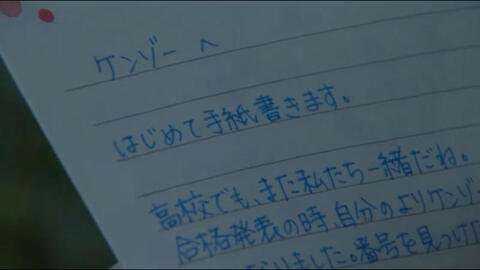 ケンゾーへ
はじめて手紙書きます。
高校でも、また私たち一緒だね。
合格発表の時、自分のよりケンゾー
なりました。番号を見つけ